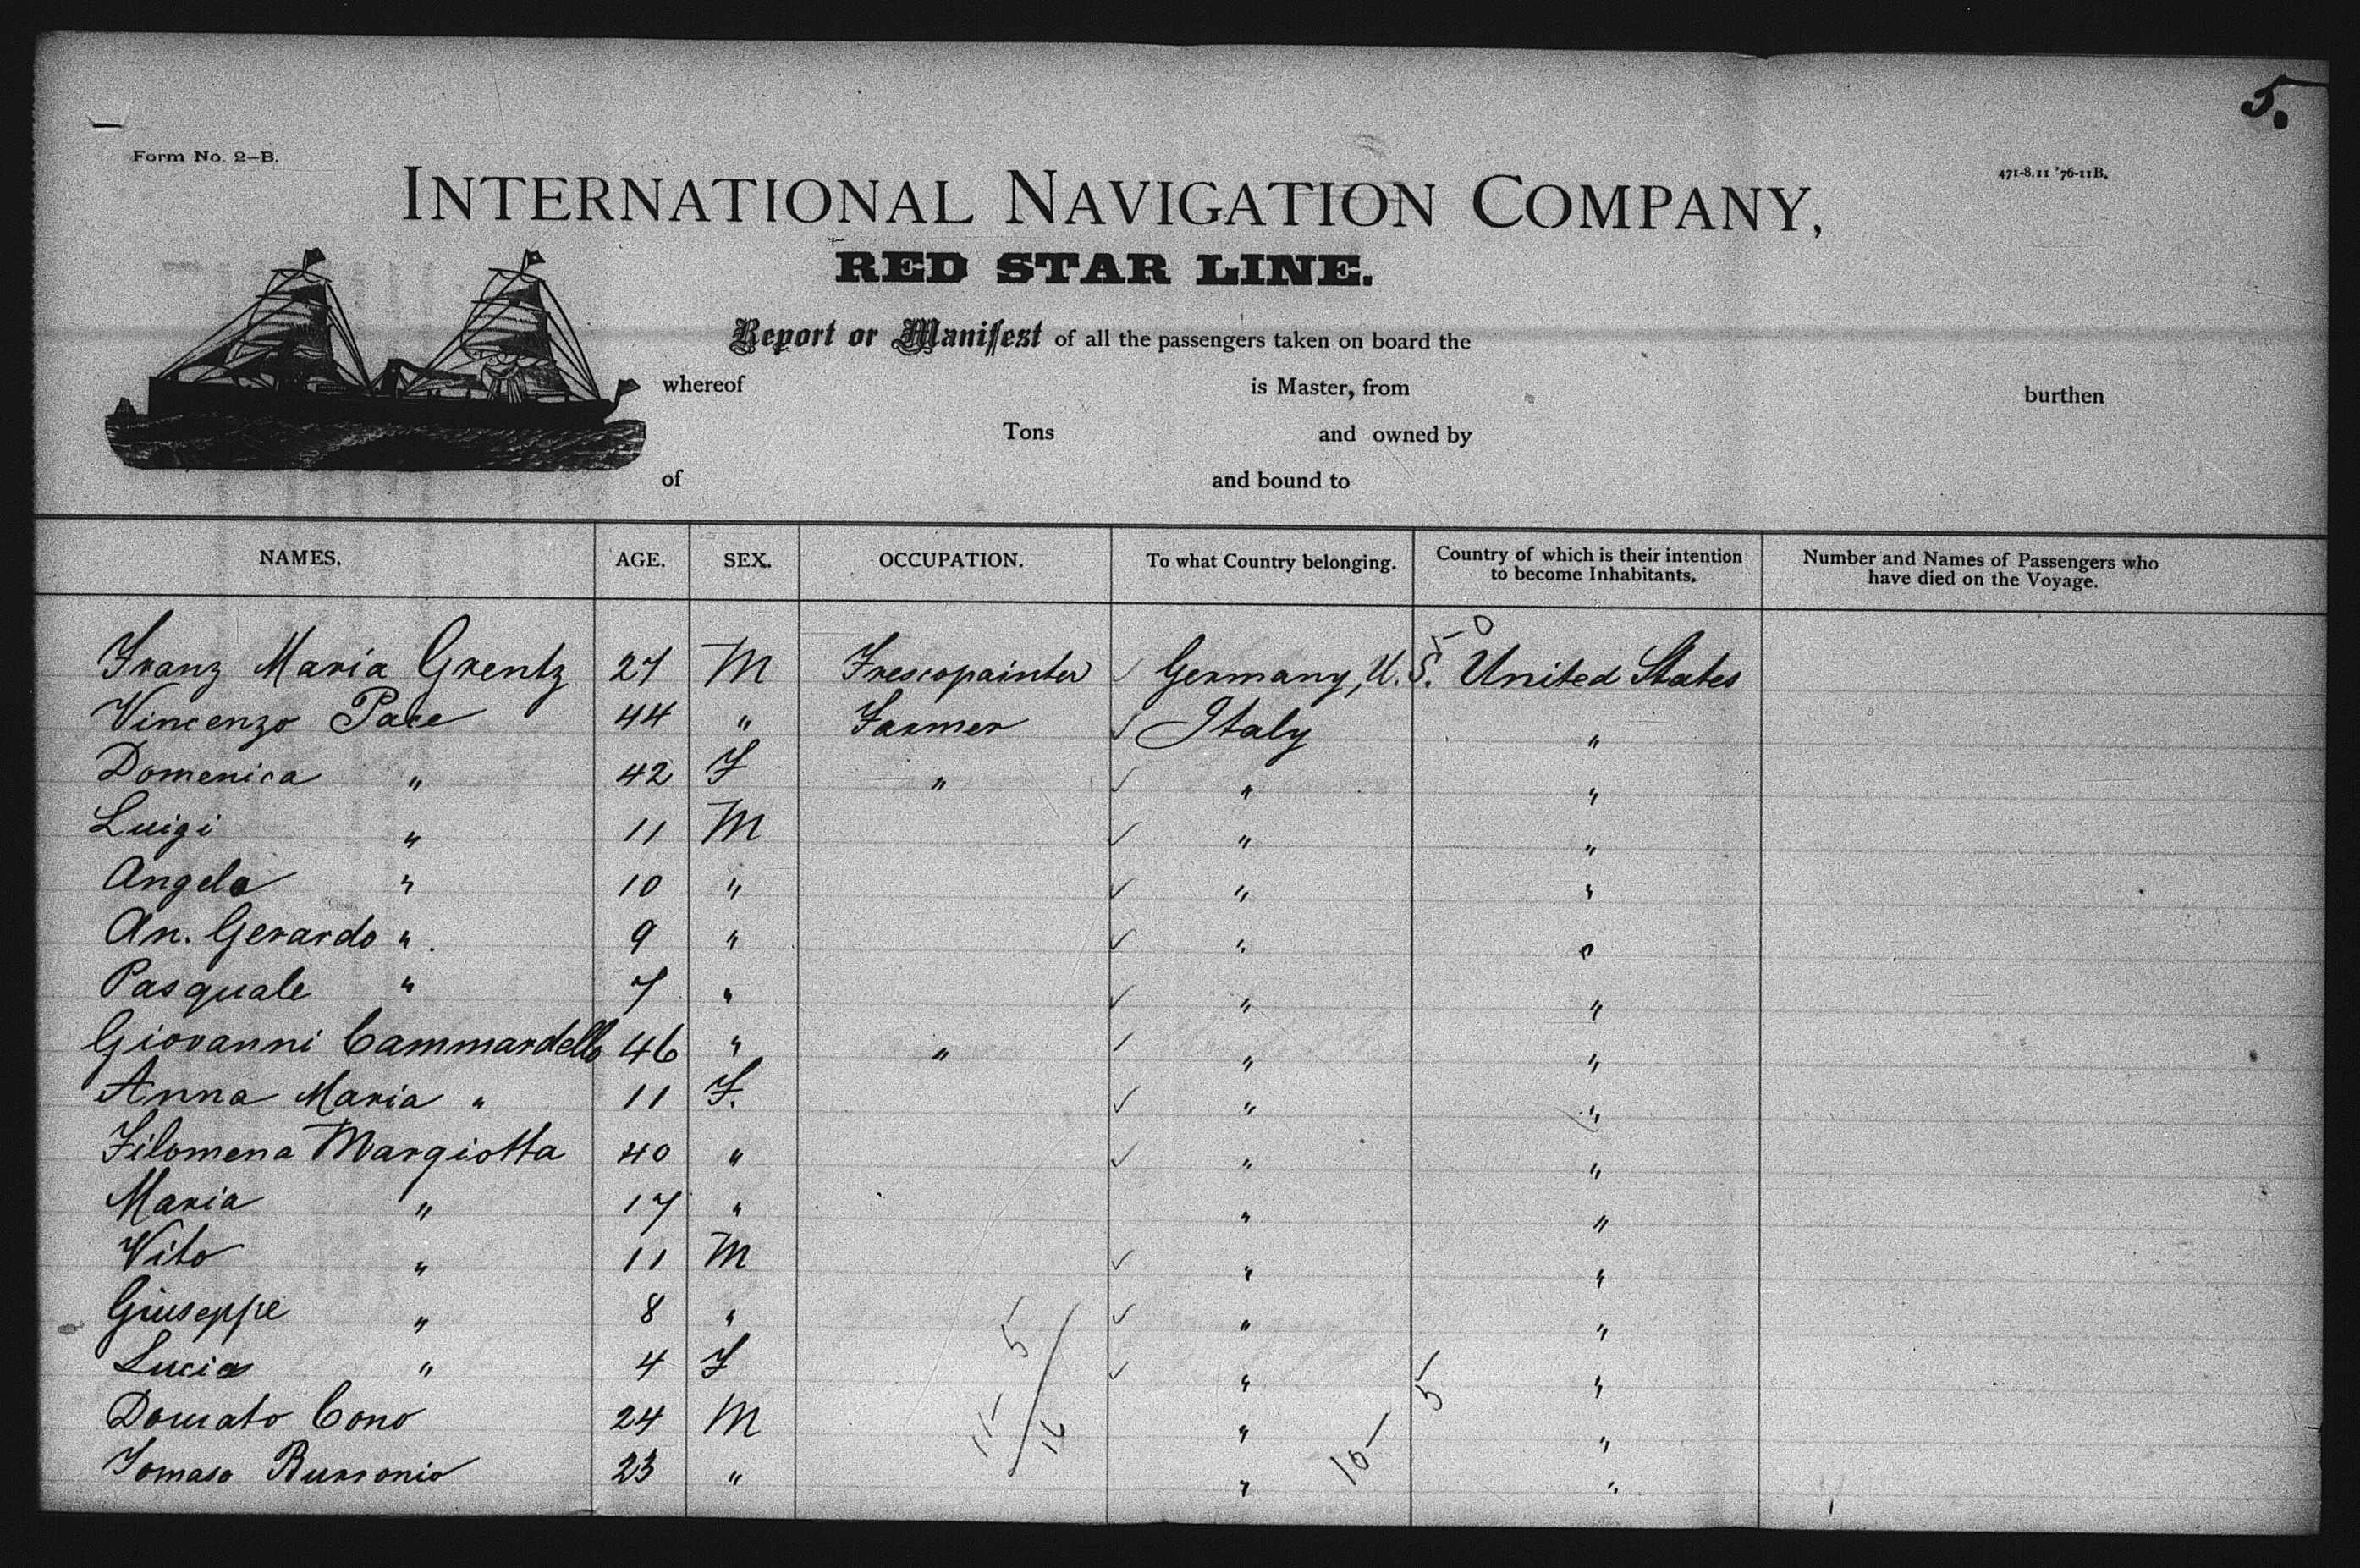 5.
Form No. 2-B.
471-8.11 '76-11B.
INTERNATIONAL NAVIGATION COMPANY,
RED STAR LINE.
Report or Manifest of all the passengers taken on board the
whereof is Master, from burthen
Tons and owned by
of and bound to
NAMES. AGE. SEX. OCCUPATION. To what Country belonging. Country of which is their intention to become Inhabitants. Number and Names of Passengers who have died on the Voyage.
50
Franz Maria Grentz 27 M Frescopainter ✓ Germany, U.S. United States
Vincenzo Pace 44 " Farmer ✓ Italy "
Domenica " 42 F " ✓ " "
Luigi " 11 M ✓ " "
Angelo " 10 " ✓ " "
An. Gerardo " 9 " ✓ " "
Pasquale " 7 " ✓ " "
Giovanni Cammardello 46 " " ✓ " "
Anna Maria " 11 F. ✓ " "
Filomena Margiotta 40 " ✓ " "
Maria " 17 " " "
Vito " 11 M ✓ " "
Giuseppe " 8 " 5 ✓ " "
Lucia " 4 F ✓ " 5 "
Donato Cono 24 M 11 / 16 " "
Tomaso Bursonio 23 " " 10 "